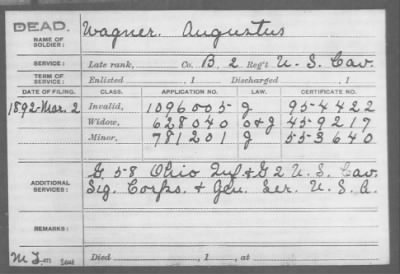 DEAD.
NAME OF SOLDIER: Wagner, Augustus
SERVICE: Late rank, Co. B, 2 Reg't U. S. Cav.
TERM OF SERVICE: Enlisted , 1 Discharged , 1
DATE OF FILING. CLASS. APPLICATION NO. LAW. CERTIFICATE NO.
1892-Mar. 2 Invalid, 1096005 g 954422
Widow, 628040 o & g 459217
Minor, 781201 g 553640
ADDITIONAL SERVICES: G 58 Ohio Inf. & G 2 U. S. Cav.
Sig. Corps. & Gen. Ser. U. S. A.
REMARKS:
Died , 1 , at